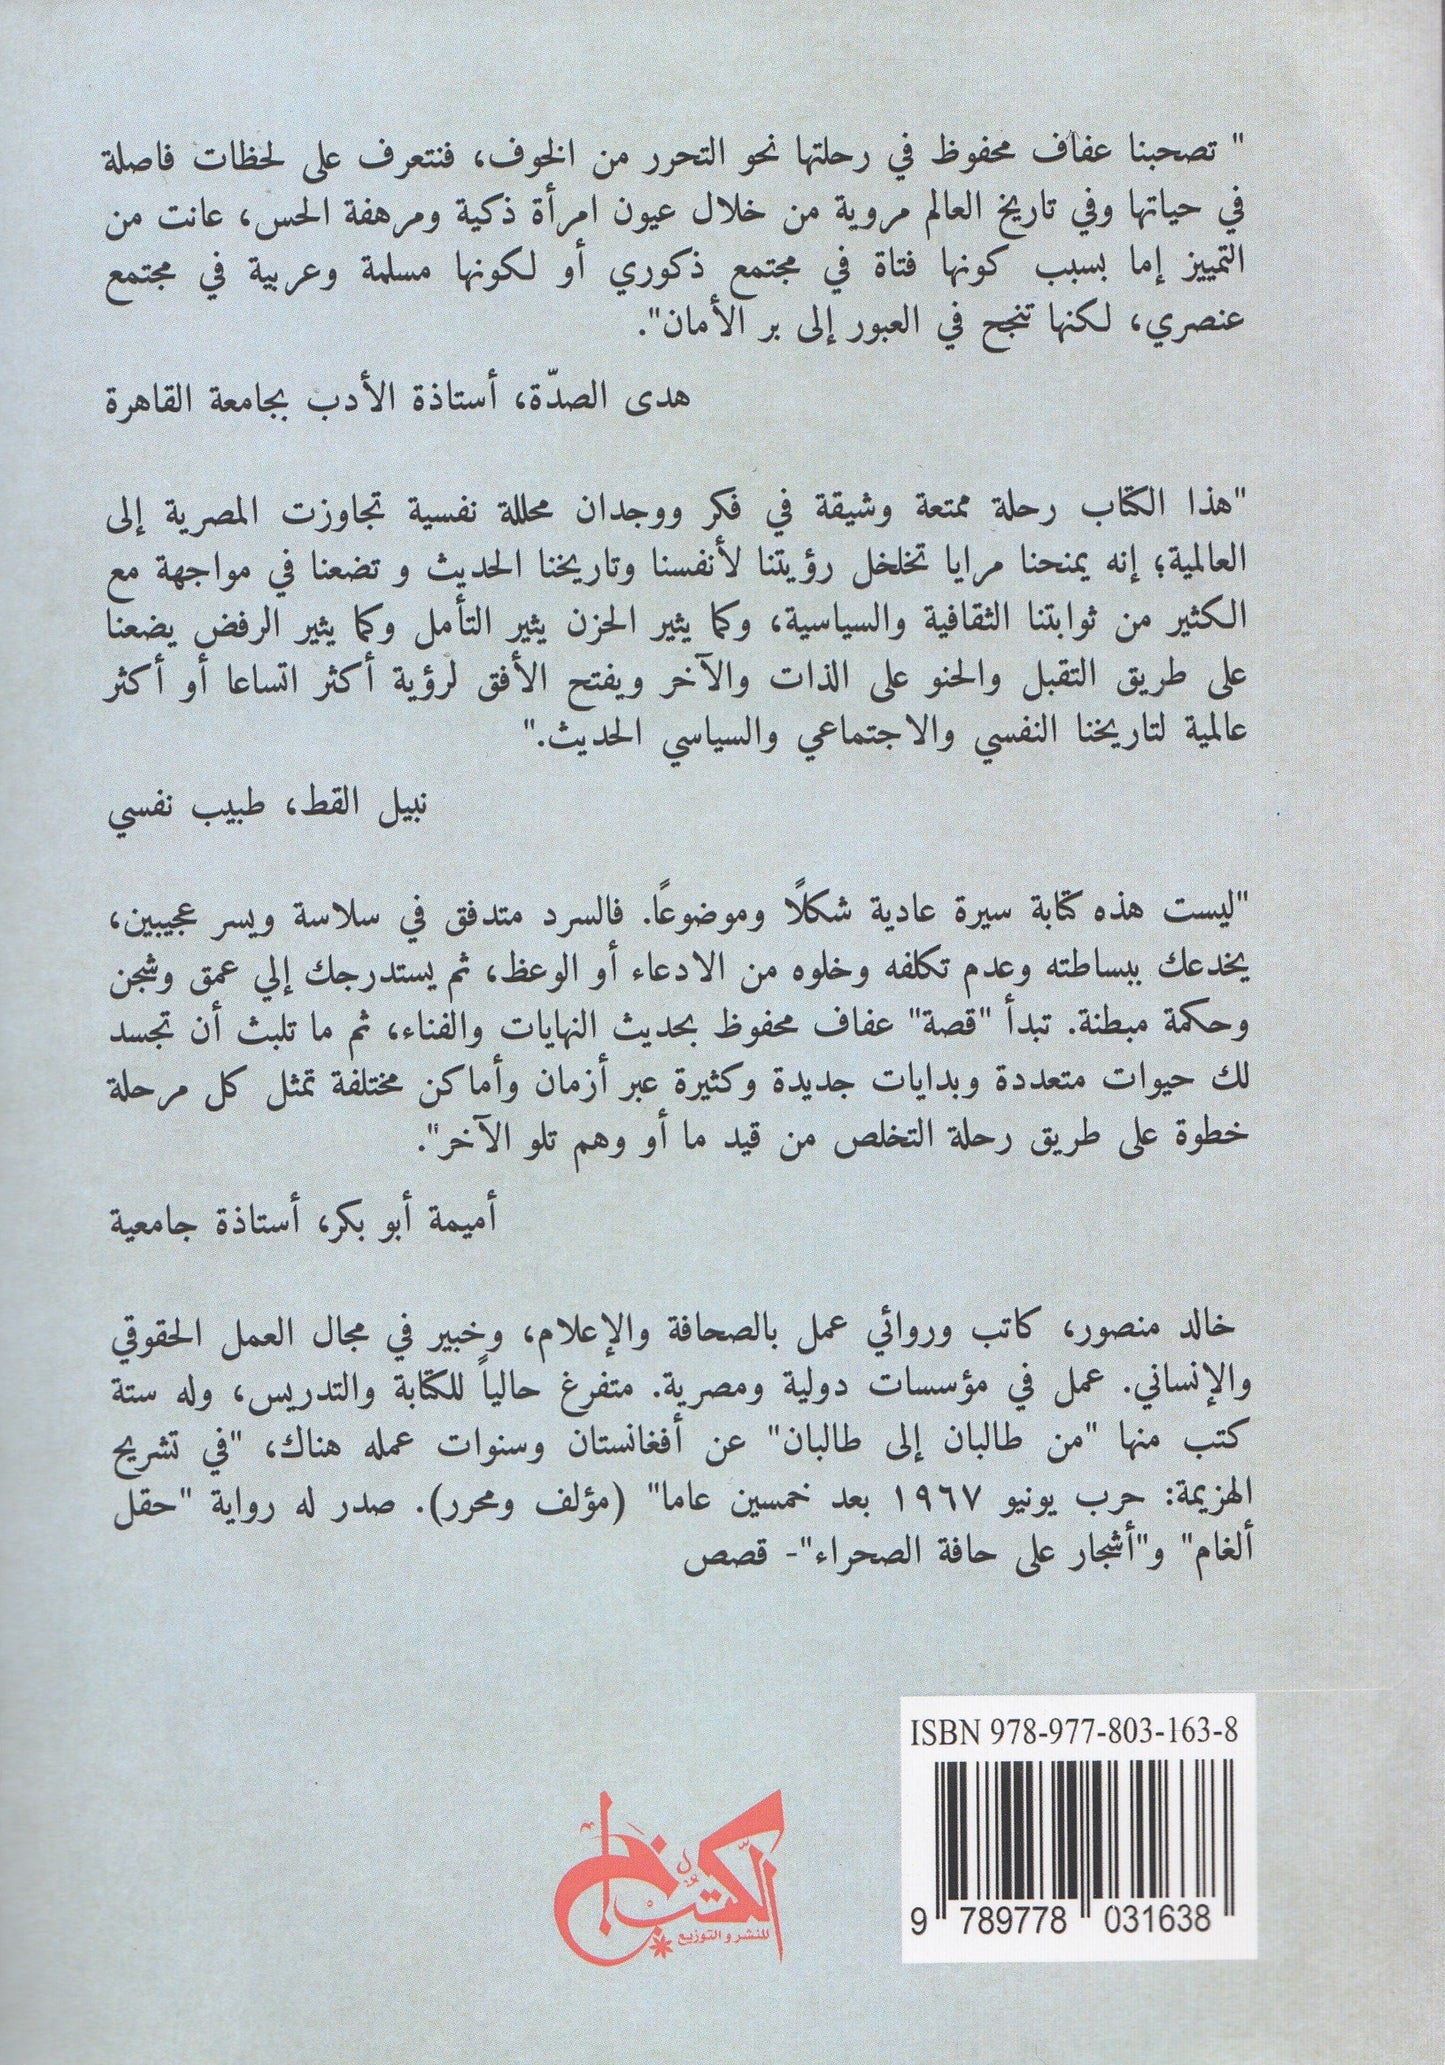 " تصحبنا عفاف محفوظ في رحلتها نحو التحرر من الخوف، فنتعرف على لحظات فاصلة
في حياتها وفي تاريخ العالم مروية من خلال عيون امرأة ذكية ومرهفة الحس، عانت من
التمييز إما بسبب كونها فتاة في مجتمع ذكوري أو لكونها مسلمة وعربية في مجتمع
عنصري، لكنها تنجح في العبور إلى بر الأمان".
هدى الصدّة، أستاذة الأدب بجامعة القاهرة
"هذا الكتاب رحلة ممتعة وشيقة في فكر ووجدان محللة نفسية تجاوزت المصرية إلى
العالمية؛ إنه يمنحنا مرايا تخلخل رؤيتنا لأنفسنا وتاريخنا الحديث و تضعنا في مواجهة مع
الكثير من ثوابتنا الثقافية والسياسية، وكما يثير الحزن يثير التأمل وكما يثير الرفض يضعنا
على طريق التقبل والحنو على الذات والآخر ويفتح الأفق لرؤية أكثر اتساعا أو أكثر
عالمية لتاريخنا النفسي والاجتماعي والسياسي الحديث."
نبيل القط، طبيب نفسي
"ليست هذه كتابة سيرة عادية شكلًا وموضوعًا. فالسرد متدفق في سلاسة ويسر عجيبين،
يخدعك ببساطته وعدم تكلفه وخلوه من الادعاء أو الوعظ، ثم يستدرجك إلي عمق وشجن
وحكمة مبطنة. تبدأ "قصة" عفاف محفوظ بحديث النهايات والفناء، ثم ما تلبث أن تجسد
لك حيوات متعددة وبدايات جديدة وكثيرة عبر أزمان وأماكن مختلفة تمثل كل مرحلة
خطوة على طريق رحلة التخلص من قيد ما أو وهم تلو الآخر".
أميمة أبو بكر، أستاذة جامعية
خالد منصور، كاتب وروائي عمل بالصحافة والإعلام، وخبير في مجال العمل الحقوقي
والإنساني. عمل في مؤسسات دولية ومصرية. متفرغ حالياً للكتابة والتدريس، وله ستة
كتب منها "من طالبان إلى طالبان" عن أفغانستان وسنوات عمله هناك، "في تشريح
الهزيمة: حرب يونيو ١٩٦٧ بعد خمسين عاما" (مؤلف ومحرر). صدر له رواية "حقل
ألغام" و"أشجار على حافة الصحراء"- قصص
ISBN 978-977-803-163-8
9 789778 031638
الكتب خان
للنشر و التوزيع